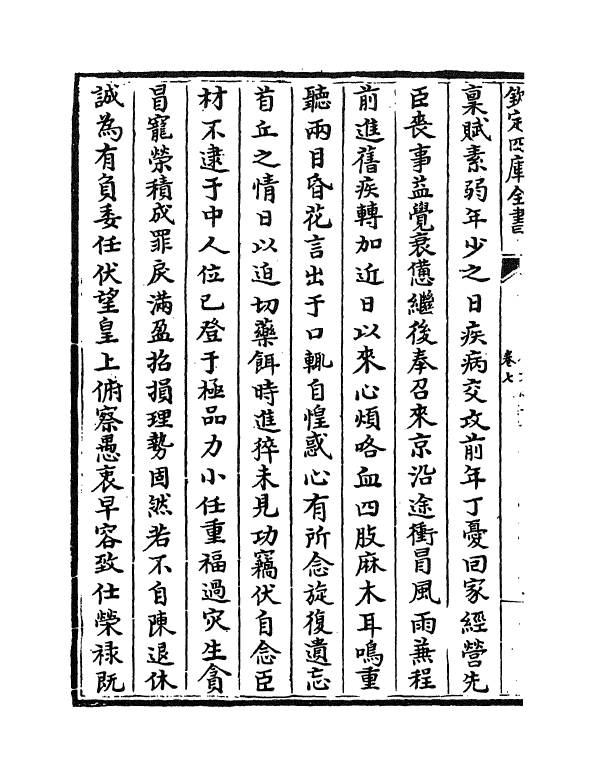 欽定四庫全書
卷七
稟賦素弱年少之日疾病交攻前年丁憂回家經營先
臣喪事益覺衰憊繼後奉召來京沿途衝冒風雨兼程
前進舊疾轉加近日以來心煩咯血四肢麻木耳鳴重
聽兩目昏花言出于口輒自惶惑心有所念旋復遺忘
首丘之情日以迫切藥餌時進猝未見功竊伏自念臣
材不逮于中人位已登于極品力小任重福過灾生貪
冒寵榮積成罪戾滿盈招損理勢固然若不自陳退休
誠為有負委任伏望皇上俯察愚衷早容致仕榮祿既